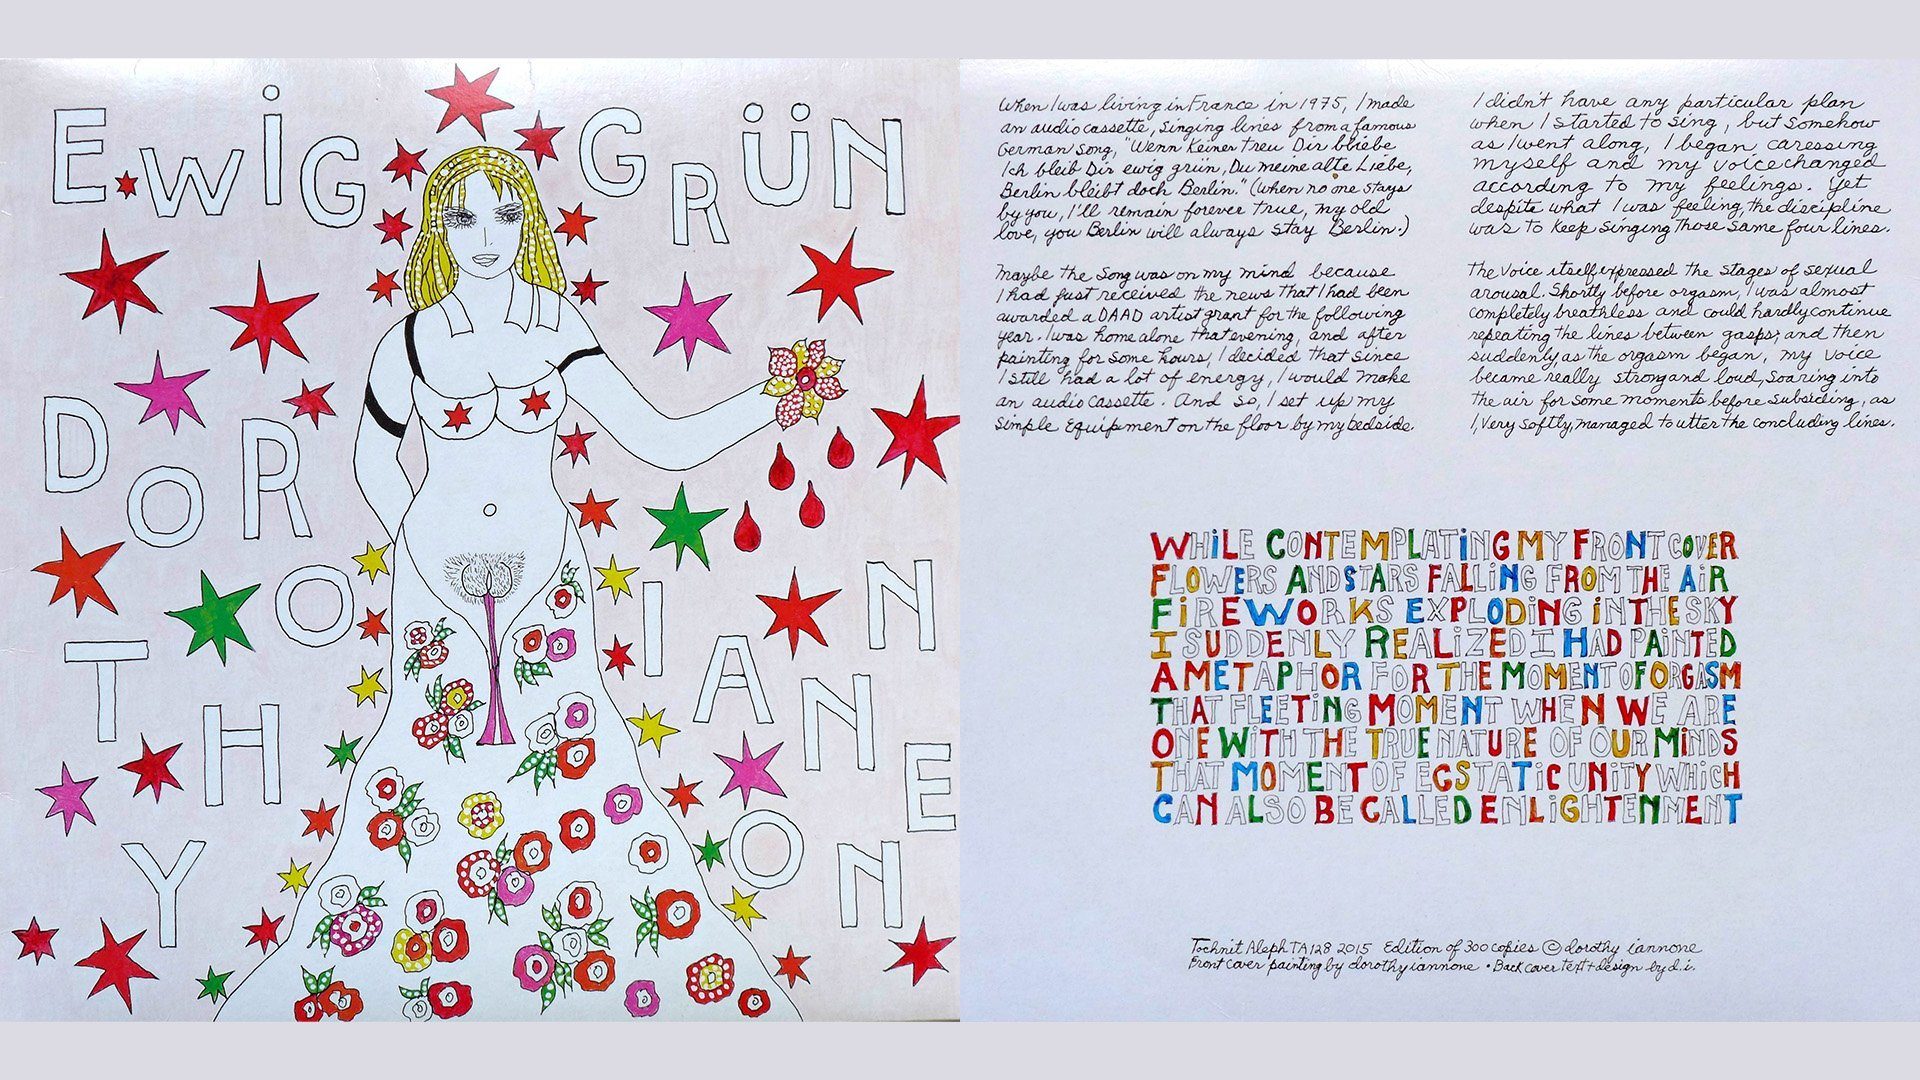 EWiG GRÜN
DOROTHY
IANNONE
When I was living in France in 1975, I made
an audio cassette, singing lines from a famous
German song, "Wenn Keiner treu Dir bliebe
Ich bleib Dir ewig grün, Du meine alte Liebe,
Berlin bleibt doch Berlin." (When no one stays
by you, I'll remain forever true, my old
love, you Berlin will always stay Berlin.)
Maybe the song was on my mind because
I had just received the news that I had been
awarded a DAAD artist grant for the following
year. I was home alone that evening, and after
painting for some hours, I decided that since
I still had a lot of energy, I would make
an audio cassette. And so, I set up my
simple equipment on the floor by my bedside.
I didn't have any particular plan
when I started to sing, but somehow
as I went along, I began caressing
myself and my voice changed
according to my feelings. Yet
despite what I was feeling, the discipline
was to keep singing those same four lines.
The voice itself expressed the stages of sexual
arousal. Shortly before orgasm, I was almost
completely breathless and could hardly continue
repeating the lines between gasps; and then
suddenly, as the orgasm began, my voice
became really strong and loud, soaring into
the air for some moments before subsiding, as
I, very softly, managed to utter the concluding lines.
WHiLE CONTEMPLATiNG MY FRONT COVER
FLOWERS AND STARS FALLiNG FROM THE AiR
FiREWORKS EXPLODiNG iN THE SKY
I SUDDENLY REALiZED I HAD PAiNTED
A METAPHOR FOR THE MOMENT OF ORGASM
THAT FLEETiNG MOMENT WHEN WE ARE
ONE WiTH THE TRUE NATURE OF OUR MiNDS
THAT MOMENT OF ECSTATiC UNiTY WHiCH
CAN ALSO BE CALLED ENLiGHTENMENT
Tochnit Aleph TA128 2015 Edition of 300 copies © dorothy iannone
Front cover painting by dorothy iannone • Back cover text + design by d.i.